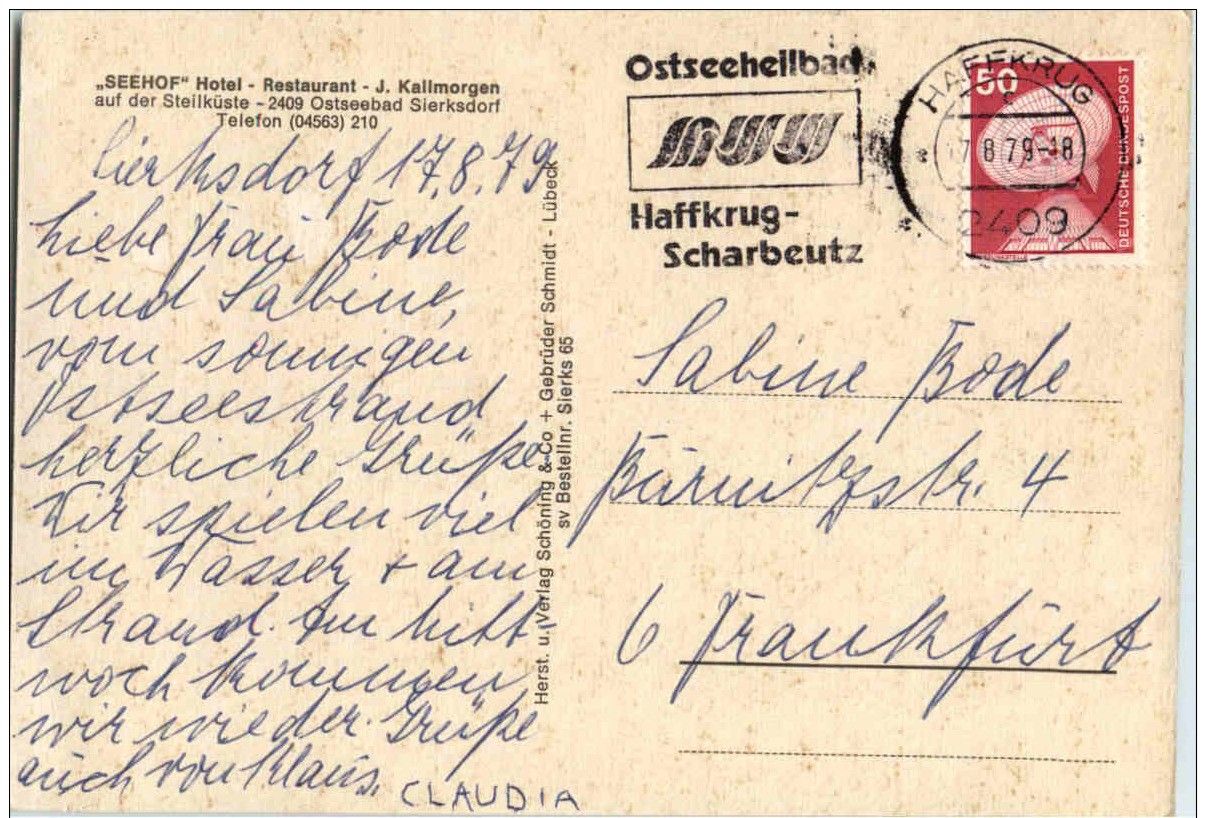 „SEEHOF" Hotel - Restaurant - J. Kallmorgen
auf der Steilküste - 2409 Ostseebad Sierksdorf
Telefon (04563) 210
Sierksdorf 17.8.79
Liebe Frau Bode
und Sabine,
vom sonnigen
Ostseestrand
herzliche Grüße.
Wir spielen viel
im Wasser + am
Strand. Am Mitt-
woch kommen
wir wieder. Grüße
auch von Klaus.
CLAUDIA
Herst. u. Verlag Schöning & Co + Gebrüder Schmidt - Lübeck
sv Bestellnr. Sierks 65
Ostseeheilbad
Haffkrug-
Scharbeutz
HAFFKRUG
17.8.79-18
2409
50
DEUTSCHE BUNDESPOST
Sabine Bode
Burnitzstr. 4
6 Frankfurt